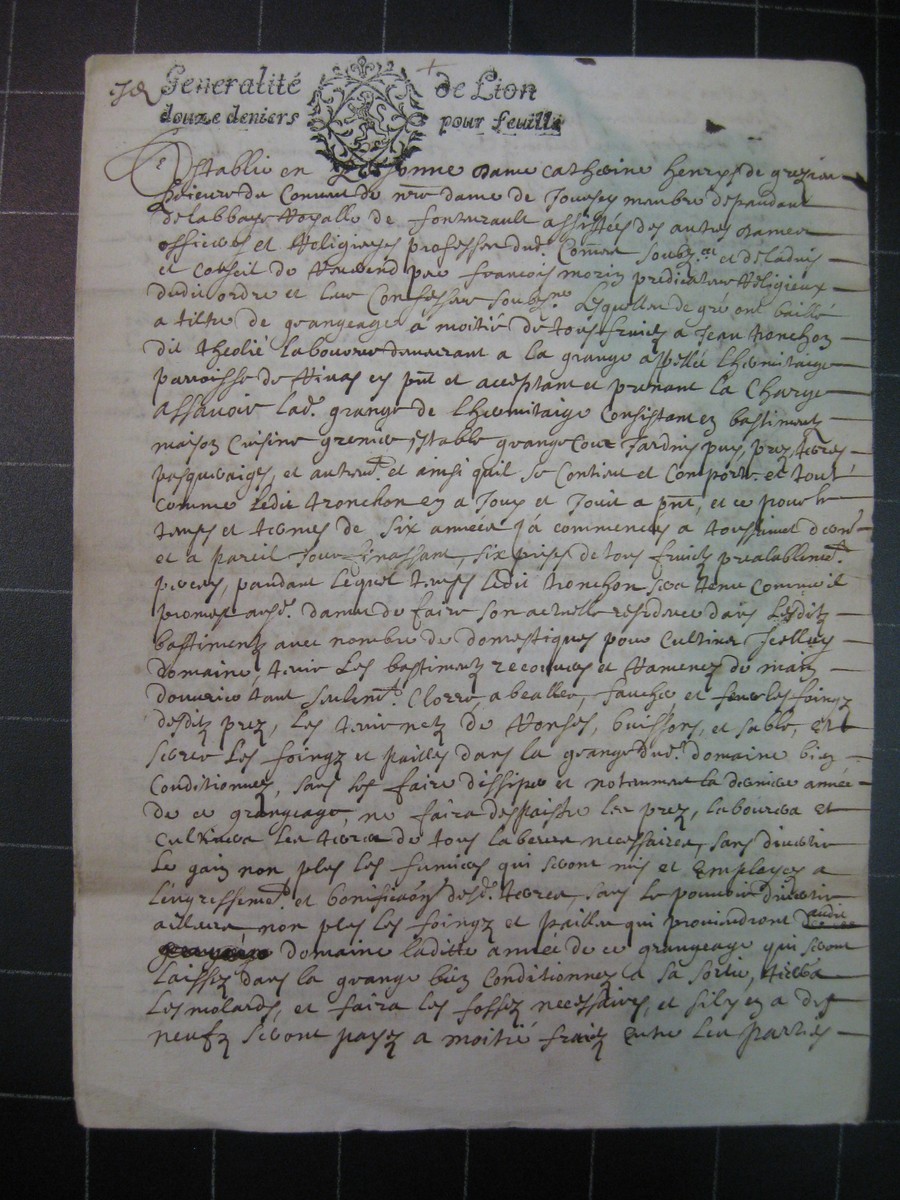 Generalité de Lion
douze deniers pour feuille
Establie en personne dame catherine henrys de
prieure du Convent de nre dame de Jourcey membre despandant
de labbaye Royalle de fontevrault assistées des autres dames
officieres et Religieuses professes dud. Convent soubz.es et de ladvis
et Conseil de Reverend pere francois morin predicateur Religieux
dudit ordre et leur Confesseur soubz.ne Lesquelles de gré ont baillé
a tiltre de grangeage a moitié de tous fruicts a Jean tronchon
dit theolié laboureur demeurant a la grange appellée Lhermitaige
parroisse de Rivas cy pnt et acceptant et prenant la Charge
Assavoir lad. grange de Lhermitaige Consistant en bastiments
maison Cuisine grenier estable grange Cour Jardins puy, prez, terres
pasqueraiges, et autremt. et ainsi quil se Contient et Comporte et tout
comme Ledit tronchon en a Jouy et Jouit a pnt, et ce pour le
temps et termes de six années Ja commencées a toussaint
et a pareil Jour finissant, six prises de tous fruicts prealablemt.
perceus, pandant lequel temps Ledit tronchon sera tenu Comme il
promet ausd. dames de faire son actuelle residence dans Lesditz
bastimentz avec nombre de domestiques pour Cultiver Icelluy
domaine, tenir Les bastimentz recouvers et Ramenez de main
douvrier tant seulemt. Clorre, abealler, faucher et fener les foingz
desditz prez, Les tenir netz de Ronses, buissons, et sable, et
serrer Les foingz et pailles dans la grange dud. domaine bien
Conditionnés, sans les faire dissiper et notamment la derniere année
de ce grangeage, ne faira despaistre les prez, labourera et
Cultivera les terres de tous labeurs necessaires, sans divertir
Le gain non plus les fumiers qui seront mis et Employez a
Lengressement. et bonification desd. terres, sans le pouvoir divertir
ailleurs, non plus les foingz et pailles qui proviendront dudit
domaine laditte année de ce grangeage qui seront
Laissez dans la grange bien Conditionnez a sa sortie,
Les molards, et faira les fossez necessaires, et sil y en a de
neufz seront payez a moitié fraitz entre les parties